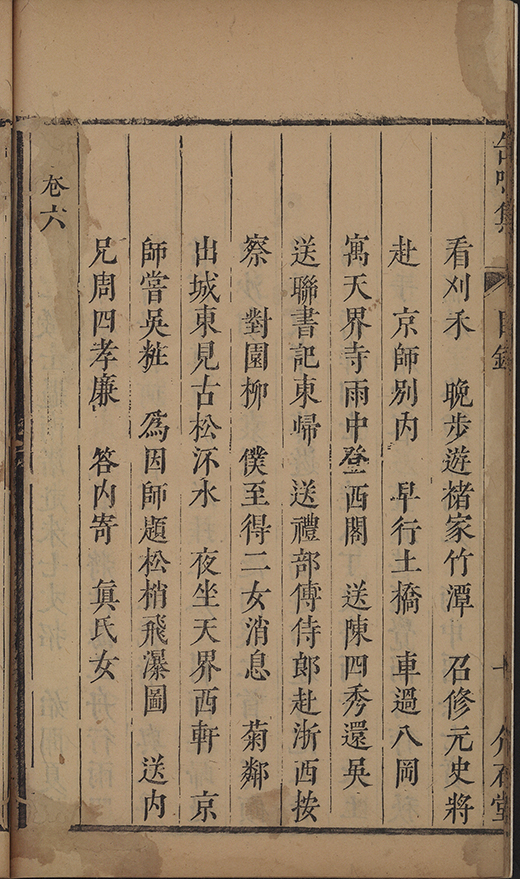 看刈禾　晚步遊褚家竹潭　召修元史將
赴　京師別内　早行土橋　車過八岡
寓天界寺雨中登西閣　送陳四秀還吳
送聯書記東歸　送禮部傅侍郎赴浙西按
察　對園柳　僕至得二女消息　菊鄰
出城東見古松沠水　夜坐天界西軒　京
師嘗吳粧　爲因師題松梢飛瀑圖　送内
兄周四孝廉　答内寄　眞氏女
卷六
目錄